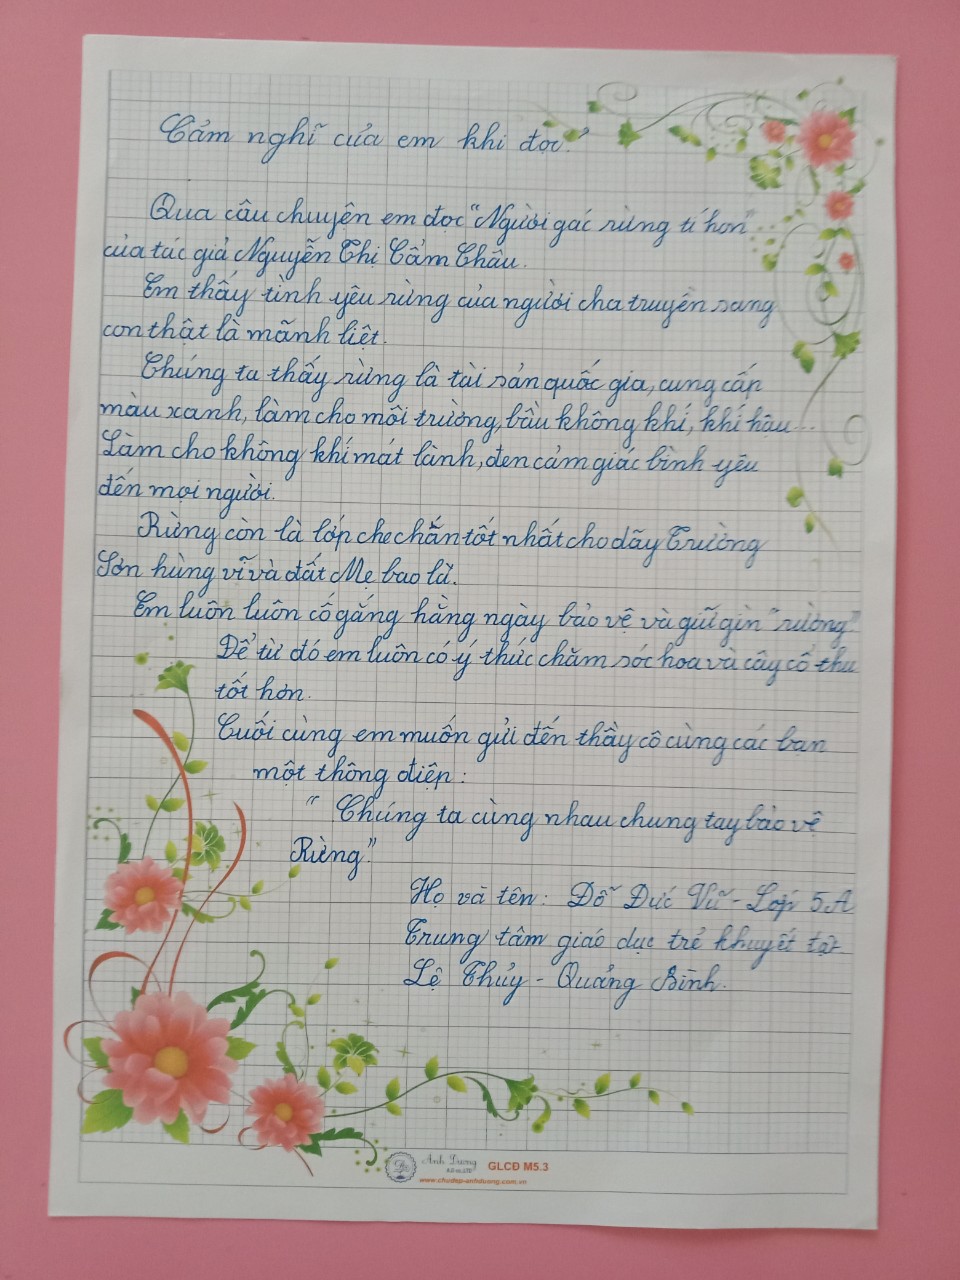 Cảm nghĩ của em khi đọc.
Qua câu chuyện em đọc "Người gác rừng tí hon"
của tác giả Nguyễn Thị Cẩm Châu.
Em thấy tình yêu rừng của người cha truyền sang
con thật là mãnh liệt.
Chúng ta thấy rừng là tài sản quốc gia, cung cấp
màu xanh, làm cho môi trường, bầu không khí, khí hậu...
Làm cho không khí mát lành, đen cảm giác bình yêu
đến mọi người.
Rừng còn là lớp che chắn tốt nhất cho dãy Trường
Sơn hùng vĩ và đất Mẹ bao la.
Em luôn luôn cố gắng hằng ngày bảo vệ và giữ gìn "rường"
Để từ đó em luôn có ý thức chăm sóc hoa và cây cổ thu
tốt hơn.
Cuối cùng em muốn gửi đến thầy cô cùng các bạn
một thông điệp:
"Chúng ta cùng nhau chung tay bảo vệ
Rừng."
Họ và tên: Đỗ Đức Vũ - Lớp 5A
Trung tâm giáo dục trẻ khuyết tật
Lệ Thủy - Quảng Bình.
Ánh Dương
GLCĐ M5.3
www.chudep-anhduong.com.vn